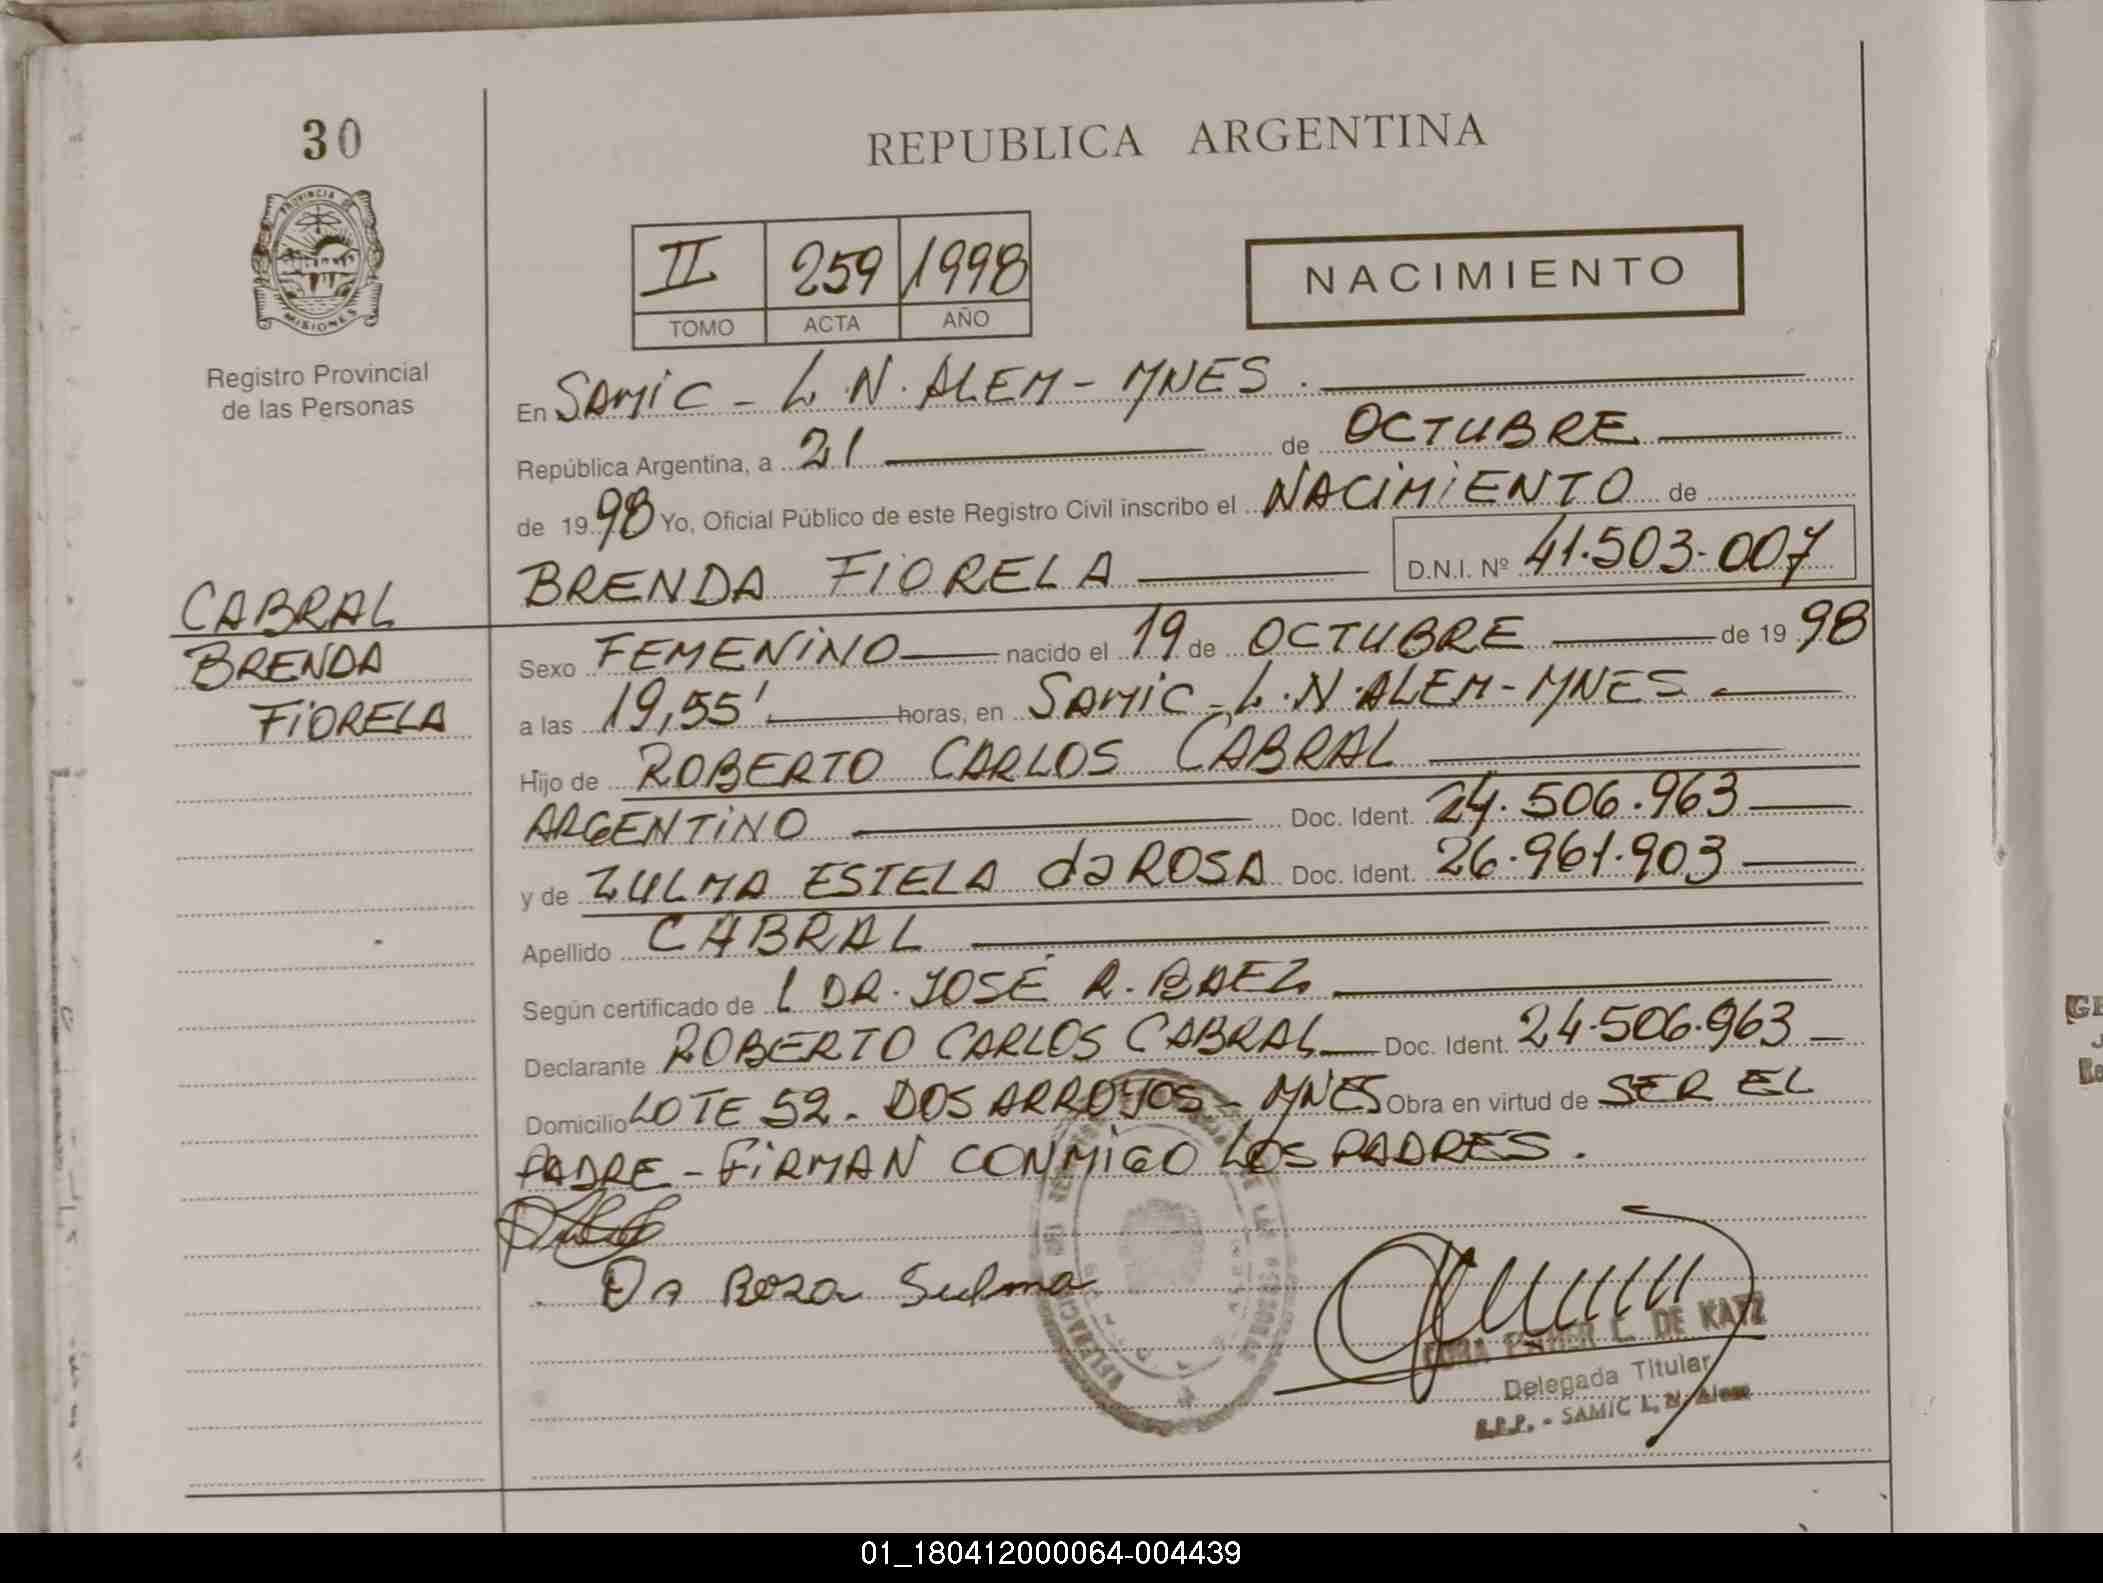 30
REPUBLICA ARGENTINA
PROVINCIA DE
MISIONES
Registro Provincial
de las Personas
II 259 1998
TOMO ACTA AÑO
NACIMIENTO
En SAMIC - L.N. ALEM - MNES.
República Argentina, a 21 de OCTUBRE
de 1998 Yo, Oficial Público de este Registro Civil inscribo el NACIMIENTO de
BRENDA FIORELA D.N.I. Nº 41.503.007
CABRAL
BRENDA
FIORELA
Sexo FEMENINO nacido el 19 de OCTUBRE de 1998
a las 19,55' horas, en SAMIC - L.N. ALEM - MNES
Hijo de ROBERTO CARLOS CABRAL
ARGENTINO Doc. Ident. 24.506.963
y de ZULMA ESTELA da ROSA Doc. Ident. 26.961.903
Apellido CABRAL
Según certificado de L DR. JOSÉ R. BAEZ
Declarante ROBERTO CARLOS CABRAL Doc. Ident. 24.506.963
Domicilio LOTE 52 - DOS ARROYOS - MNES Obra en virtud de SER EL
PADRE - FIRMAN CONMIGO LOS PADRES.
Da Rosa Sulma
ESTHER C. DE KATZ
Delegada Titular
R.P.P. - SAMIC L. N. Alem
01_180412000064-004439